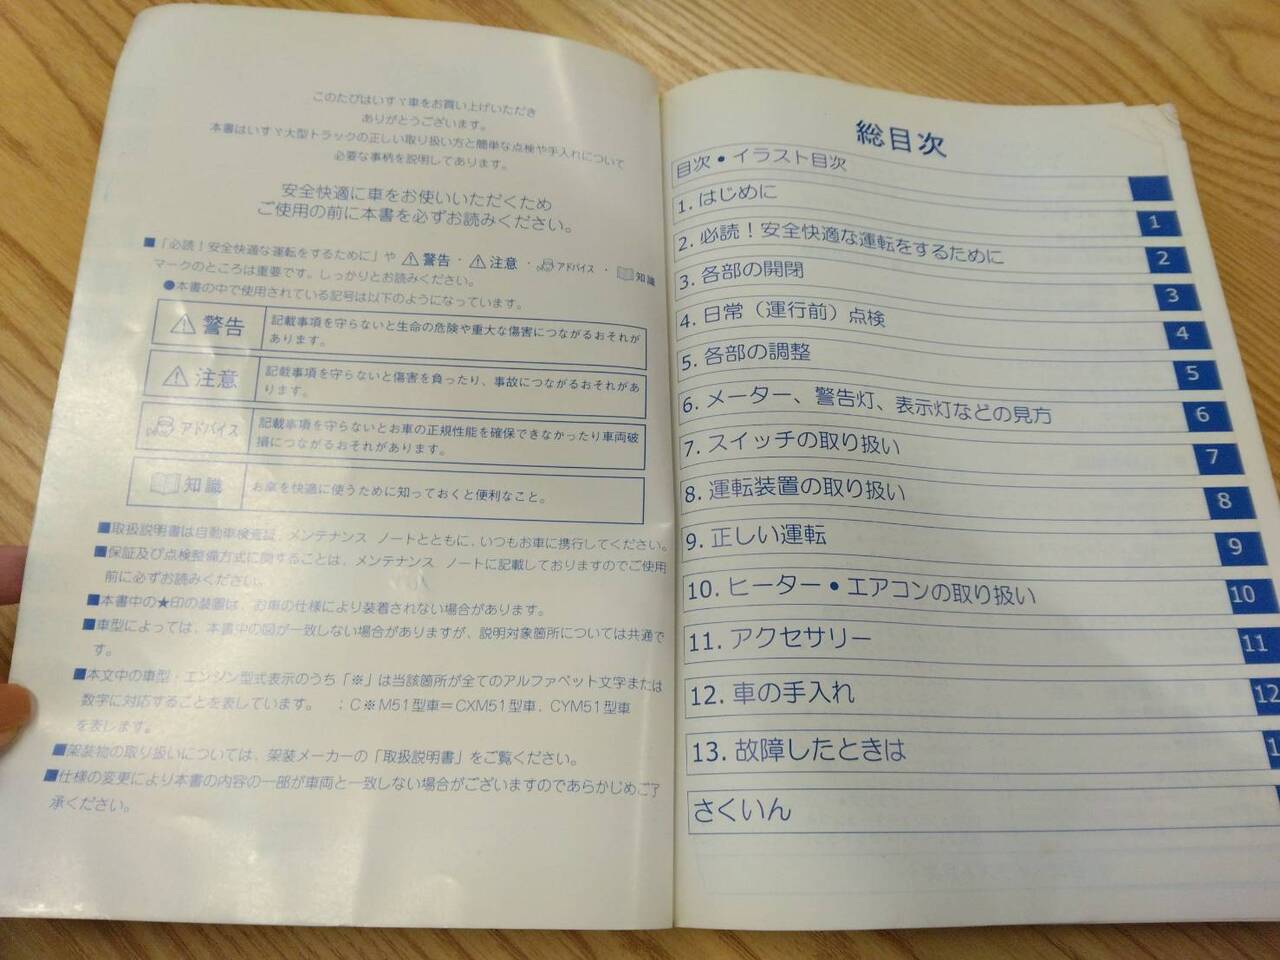 このたびはいすゞ車をお買い上げいただき
ありがとうございます。
本書はいすゞ大型トラックの正しい取り扱い方と簡単な点検や手入れについて
必要な事柄を説明してあります。
安全快適に車をお使いいただくため
ご使用の前に本書を必ずお読みください。
■「必読！安全快適な運転をするために」や ⚠警告・⚠注意・アドバイス・知識
マークのところは重要です。しっかりとお読みください。
●本書の中で使用されている記号は以下のようになっています。
⚠警告 記載事項を守らないと生命の危険や重大な傷害につながるおそれが
あります。
⚠注意 記載事項を守らないと傷害を負ったり、事故につながるおそれがあ
ります。
アドバイス 記載事項を守らないとお車の正規性能を確保できなかったり車両破
損につながるおそれがあります。
知識 お車を快適に使うために知っておくと便利なこと。
■取扱説明書は自動車検査証、メンテナンス ノートとともに、いつもお車に携行してください。
■保証及び点検整備方式に関することは、メンテナンス ノートに記載しておりますのでご使用
前に必ずお読みください。
■本書中の★印の装置は、お車の仕様により装着されない場合があります。
■車型によっては、本書中の図が一致しない場合がありますが、説明対象箇所については共通で
す。
■本文中の車型・エンジン型式表示のうち「※」は当該箇所が全てのアルファベット文字または
数字に対応することを表しています。 ：C※M51型車＝CXM51型車、CYM51型車
を表します。
■架装物の取り扱いについては、架装メーカーの「取扱説明書」をご覧ください。
■仕様の変更により本書の内容の一部が車両と一致しない場合がございますのであらかじめご了
承ください。
総目次
目次・イラスト目次
1. はじめに 1
2. 必読！安全快適な運転をするために 2
3. 各部の開閉 3
4. 日常（運行前）点検 4
5. 各部の調整 5
6. メーター、警告灯、表示灯などの見方 6
7. スイッチの取り扱い 7
8. 運転装置の取り扱い 8
9. 正しい運転 9
10. ヒーター・エアコンの取り扱い 10
11. アクセサリー 11
12. 車の手入れ 12
13. 故障したときは 1
さくいん